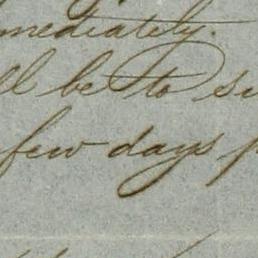 mediately.
ll be to su
few days p